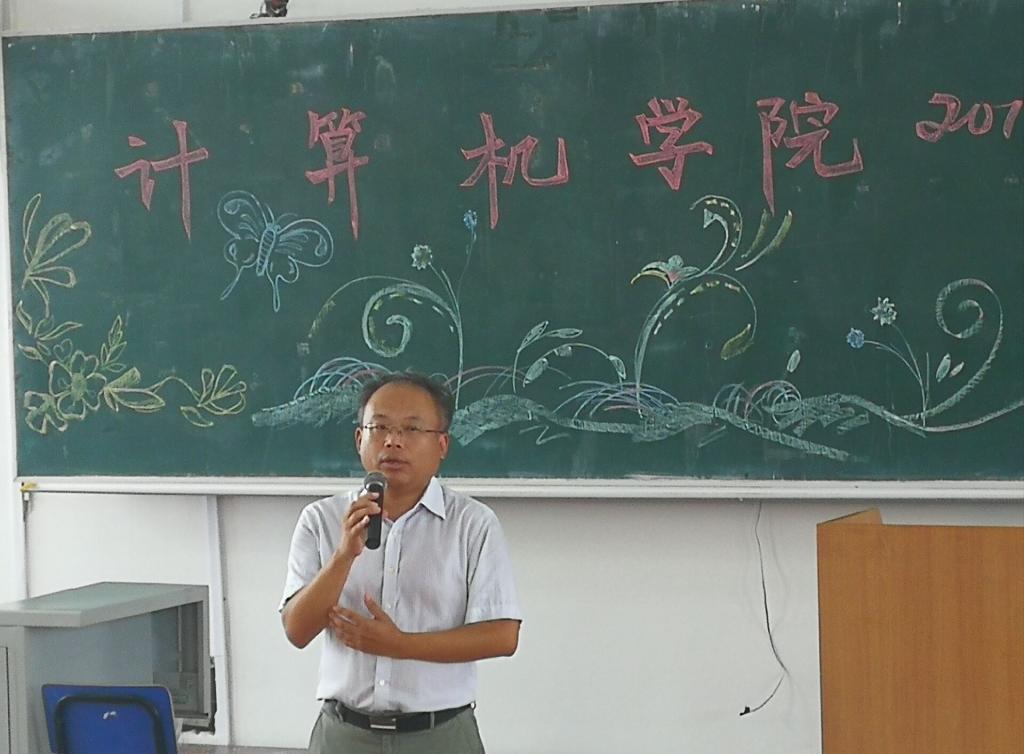 计算机学院 201